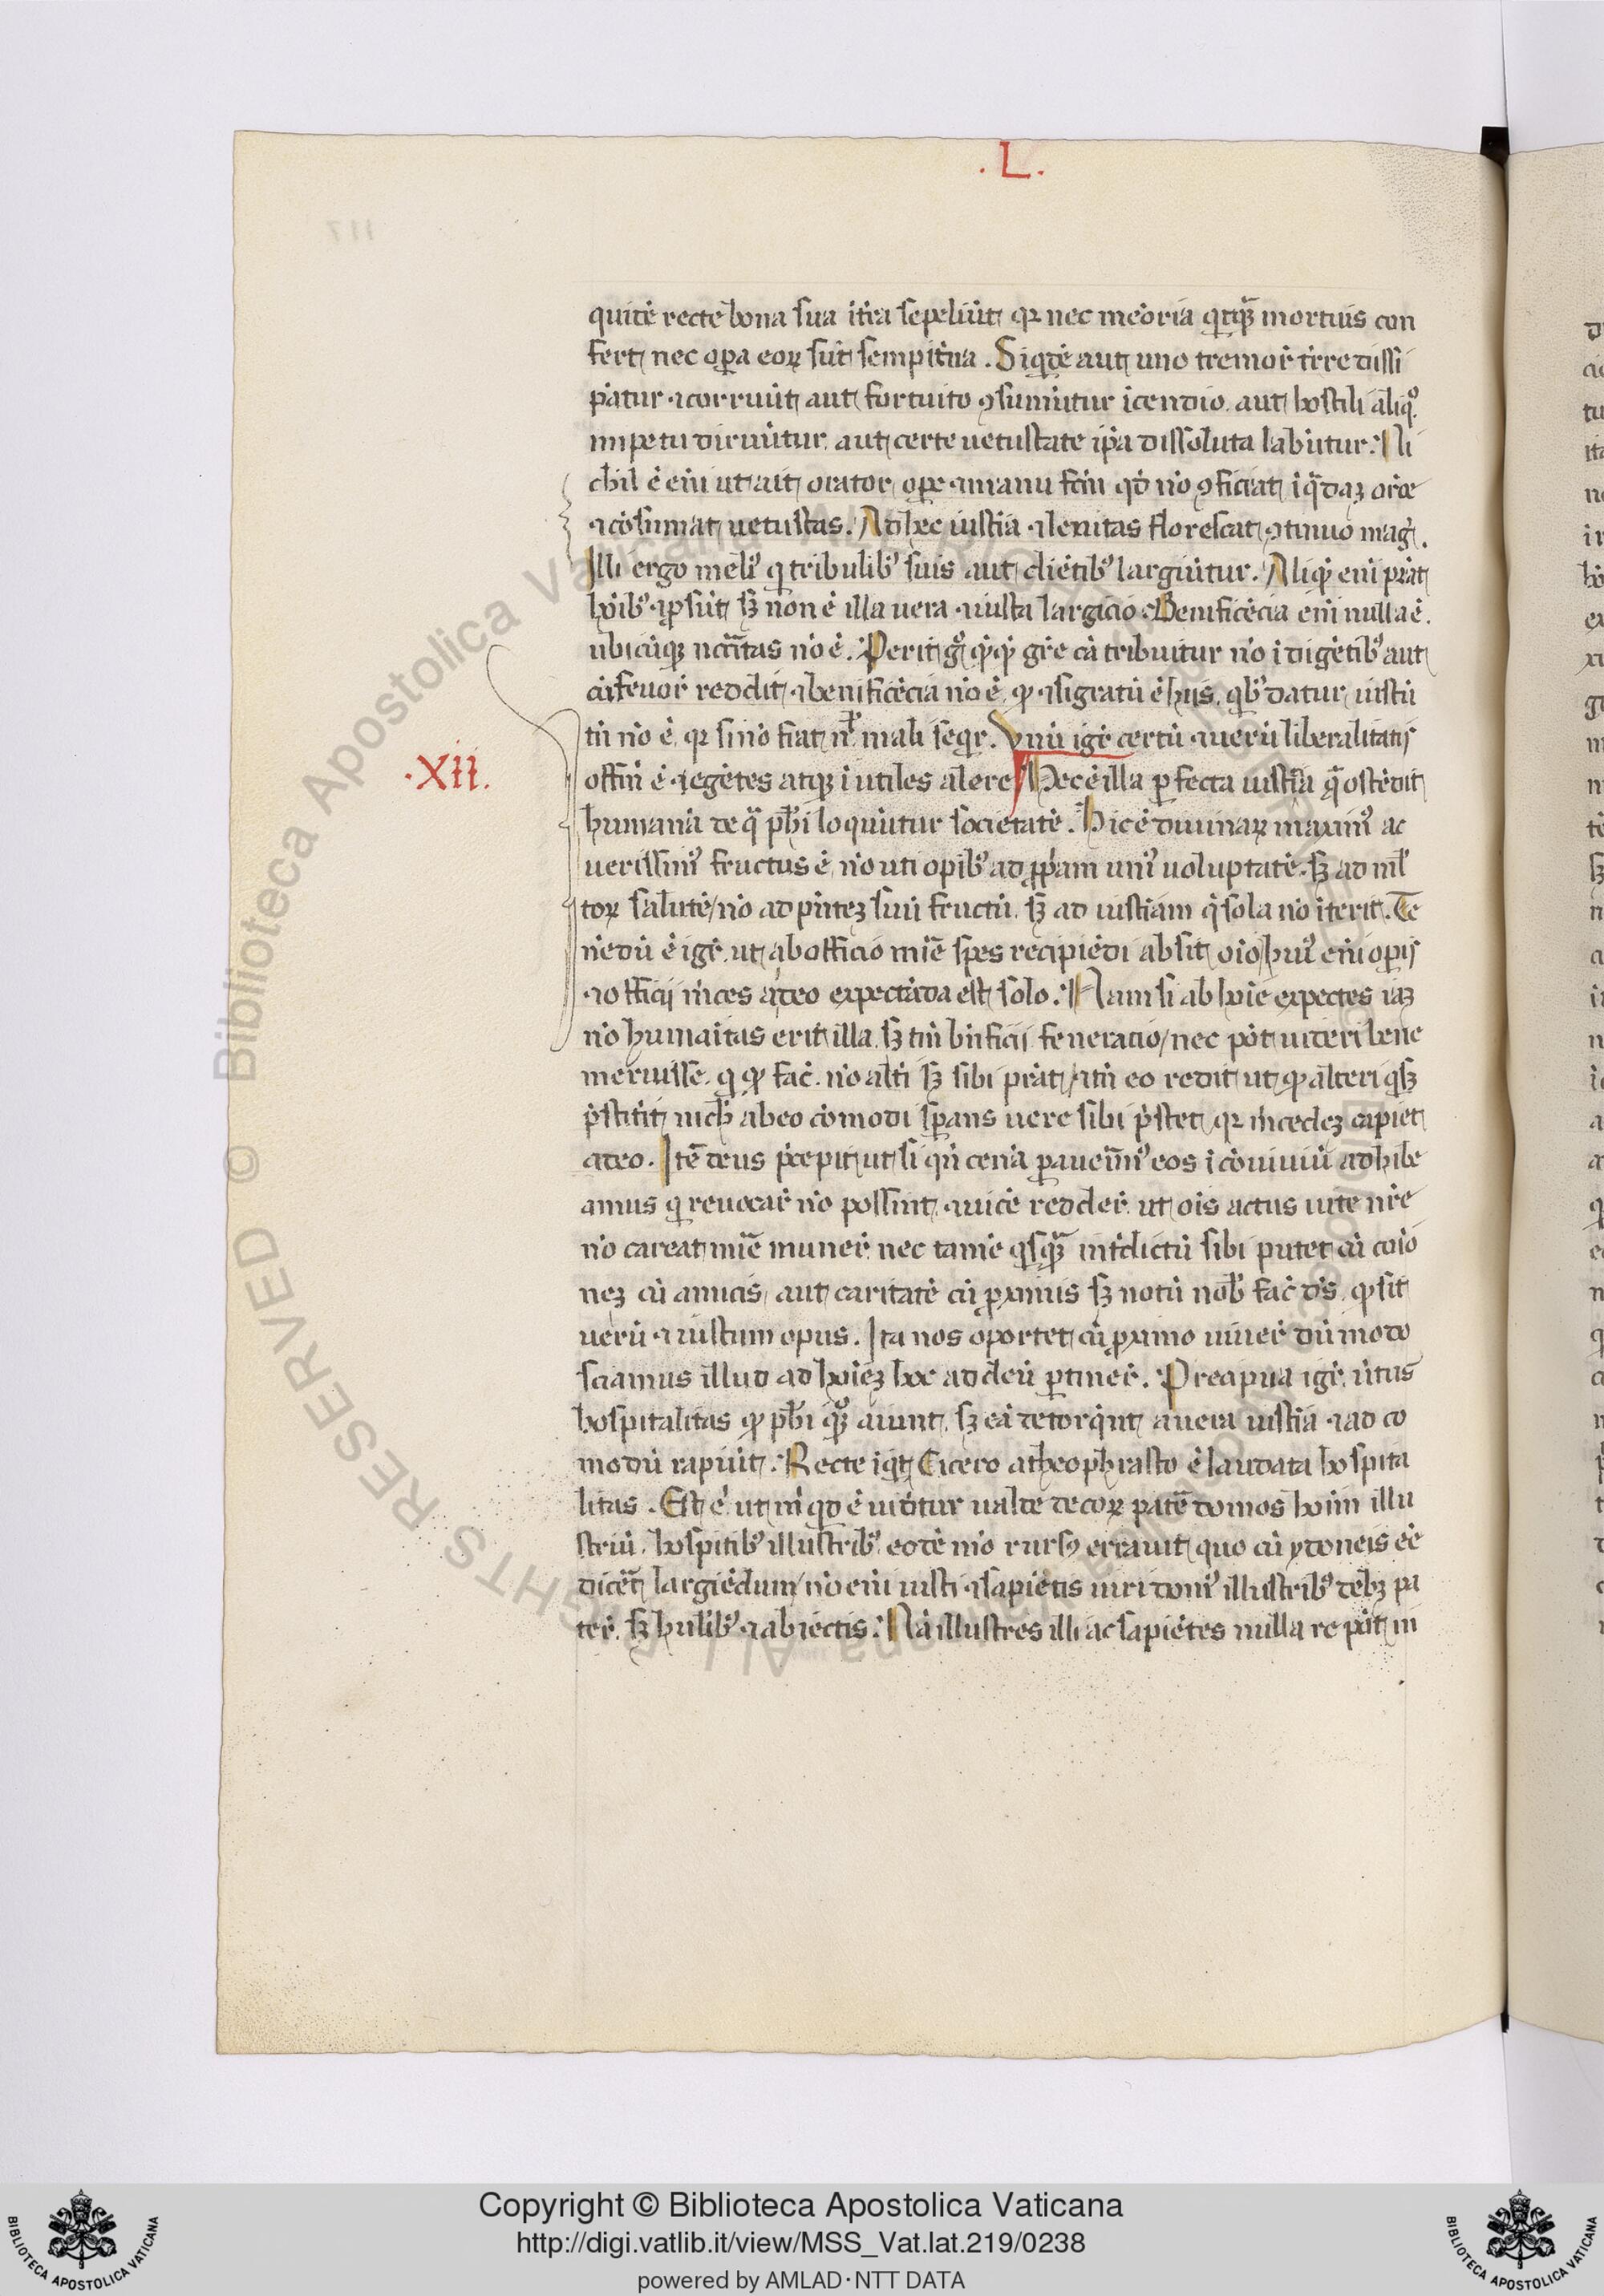 .L.
quitė recte bona sua ītra sepeliūt qꝛ nec meoria qcq̄ mortuis con
fert nec oꝑa eoꝝ sūt sempitna . Siqdē aut uno tremor̄ tr̄re dissi
pātur ⁊ corruūt aut fortuito ꝯsumūtur īcendio aut hostili aliqº
impetu diruūtur aut certe uetustate ip̄a dissoluta labūtur . Ni
chil ē eni ut ait orator oꝑe ⁊ manu fcm̄ qd nō ꝯficiat
⁊ cōsumat uetustas . Ad hec iustia ⁊ lenitas florescat ꝯtinuo mag .
Illi ergo meli⁹ q tribulib⁹ suis aut cliētib⁹ largiūtur . Aliqd eni prāt
hōib⁹ ⁊ ꝓsūt sꝫ non ē illa uera ⁊ iusta largicio . Benificēcia eni nulla ē .
ubicūqꝫ nccītas nō ē . Perit gº qcqd gr̄e cā tribuitur nō īdigētib⁹ aut
cū fenor̄ reddit ⁊ benificēcia nō ē qd ⁊ si gratū ē hiis qb⁹ datur iustū
tn̄ nō ē qꝛ si nō fiat nl mali seqr̄ . Unū igr̄ certū ⁊ uerū liberalitatis
.XII.
offm̄ ē ⁊ egētes atqꝫ īutiles alere Hec ē illa ꝑfecta iustia q̄ ostēdit
humanā de q̄ ph̄i loquūtur societatē . Hic ē diuinaꝝ maxim⁹ ac
uerissim⁹ fructus ē nō uti opib⁹ ad ꝓp̄am uni⁹ uoluptatē sꝫ ad ml
toꝝ salutē / nō ad pn̄tez suū fructū sꝫ ad iustiam q̄ sola nō īterit . Te
nēdū ē igr̄ ut ab officio mīe spes recipiēdi absit oīo hui⁹ eni oꝑis
⁊ officij m̄ces a deo expectāda est solo . Nam si ab hoīe expectes iaꝫ
nō humaītas erit illa sꝫ tm̄ bn̄ficij feneracio / nec pōt uideri bene
meruisse q qd fac̄ nō altī sꝫ sibi prāt / ⁊ tn̄ eo redit ut qd alteri qsꝫ
p̄stitit nich ab eo cōmodi sꝑans uere sibi p̄stet qꝛ m̄cedeꝫ capiet
a deo . Itē deus p̄cepit ut si qn̄ cenā parauerim⁹ eos ī cōuiuiū adhibe
amus q reuocar̄ nō possint ⁊ uicē redder̄ ut oīs actus uite nr̄e
nō careat mīe muner̄ nec tamē qsq̄ intdictū sibi putet cū coīo
neꝫ cū amicis aut caritatē cū ꝓximis sꝫ notū nob fac̄ ds qd sit
uerū ⁊ iustum opus . Ita nos oportet cū ꝓximo uiuer̄ dū modo
sciamus illud ad hoīeꝫ hoc ad deū ꝑtiner̄ . Precipua igr̄ ūtus
hospitalitas qd ph̄i qº aiunt sꝫ eā detorq̄nt a uera iustia ⁊ ad co
modū rapiūt . Recte iqt Cicero a theophrasto ē laudata hospita
litas . Est ē ut m̄ qd ē uidtur ualde decoꝝ patē domos hoīm illu
striū hospitib⁹ illustrib⁹ eodē mō rurs⁹ errauit quo cū ydoneis eē
dicet largiēdum / nō eni iusti ⁊ sapiētis uiri dom⁹ illustrib⁹ debꝫ pa
ter̄ sꝫ hūilib⁹ ⁊ abiectis . Nā illustres illi ac sapiētes nulla re pōt in
Copyright © Biblioteca Apostolica Vaticana
http://digi.vatlib.it/view/MSS_Vat.lat.219/0238
powered by AMLAD·NTT DATA